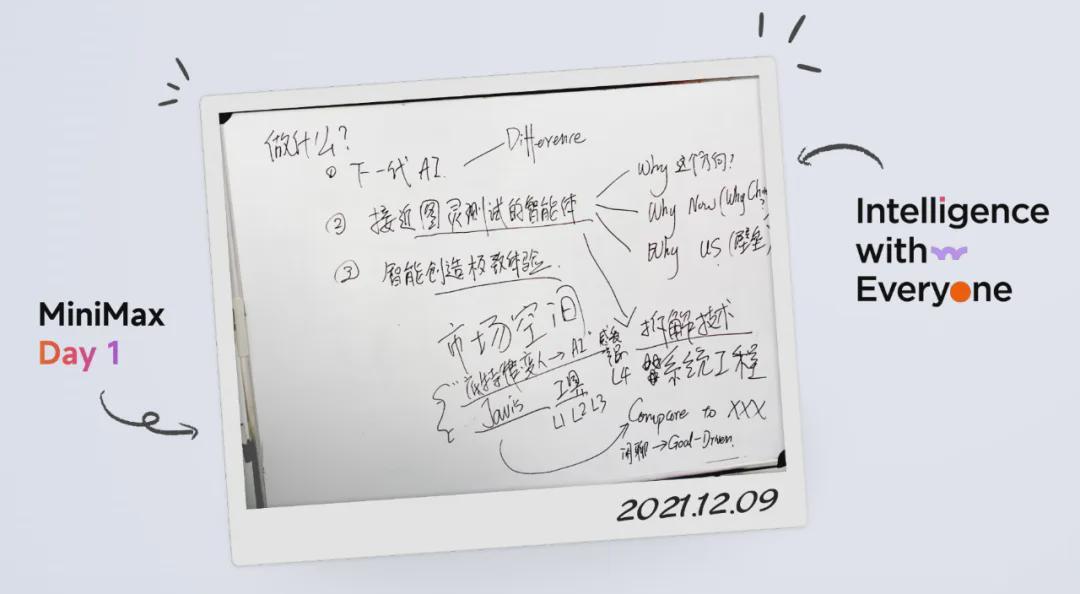 做什么?
① 下一代 AI
Difference
② 接近图灵测试的智能体
Why 这个方向?
Why Now (Why
Why US (壁垒)
③ 智能创造极致体验
市场空间
拆解技术
系统工程
变人→AI"
L4
Javis
工具
L1 L2 L3
Compare to XXX
闲聊→Goal-Driven
2021.12.09
MiniMax
Day 1
Intelligence
with
Everyone